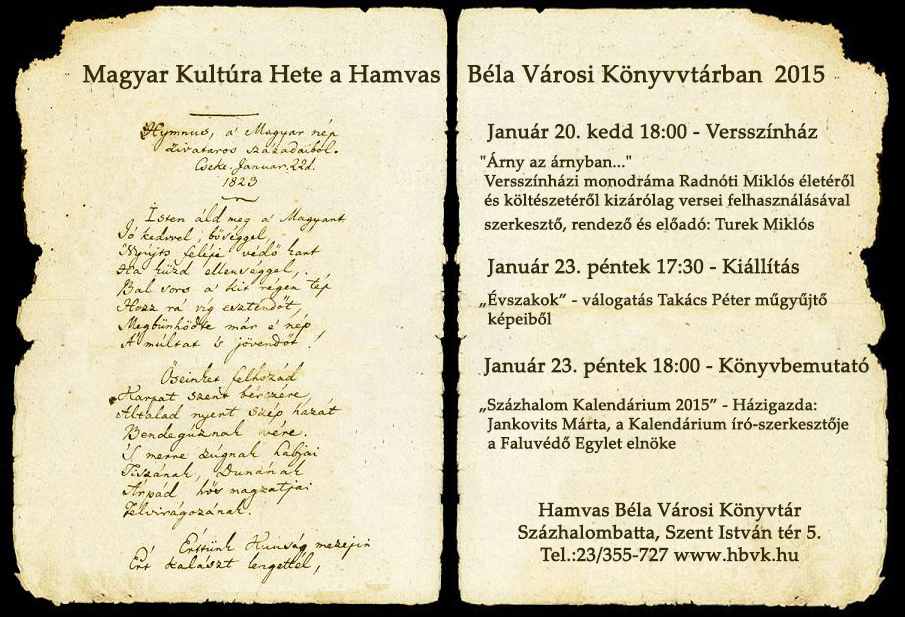 Magyar Kultúra Hete a Hamvas Béla Városi Könyvvtárban 2015
Hymnus, a' Magyar nép
zivataros századaiból.
Cseke. Januar. 22d.
1823
Isten áld meg a Magyart
Jó kedvvel, bőséggel,
Nyújts feléje védő kart
Ha küzd ellenséggel,
Bal sors a kit régen tép
Hozz rá víg esztendőt,
Megbűnhődte már e' nép
A' múltat s jövendőt!
Őseinket felhozád
Kárpát szent bérczére,
Általad nyert szép hazát
Bendegúznak vére.
S merre zúgnak habjai
Tiszának, Dunának
Árpád hős magzatjai
Felvirágozának.
Értünk Kunság mezejin
Ért kalászt lengettél,
Január 20. kedd 18:00 - Versszínház
"Árny az árnyban..."
Versszínházi monodráma Radnóti Miklós életéről
és költészetéről kizárólag versei felhasználásával
szerkesztő, rendező és előadó: Turek Miklós
Január 23. péntek 17:30 - Kiállítás
„Évszakok” - válogatás Takács Péter műgyűjtő
képeiből
Január 23. péntek 18:00 - Könyvbemutató
„Százhalom Kalendárium 2015” - Házigazda:
Jankovits Márta, a Kalendárium író-szerkesztője
a Faluvédő Egylet elnöke
Hamvas Béla Városi Könyvtár
Százhalombatta, Szent István tér 5.
Tel.:23/355-727 www.hbvk.hu